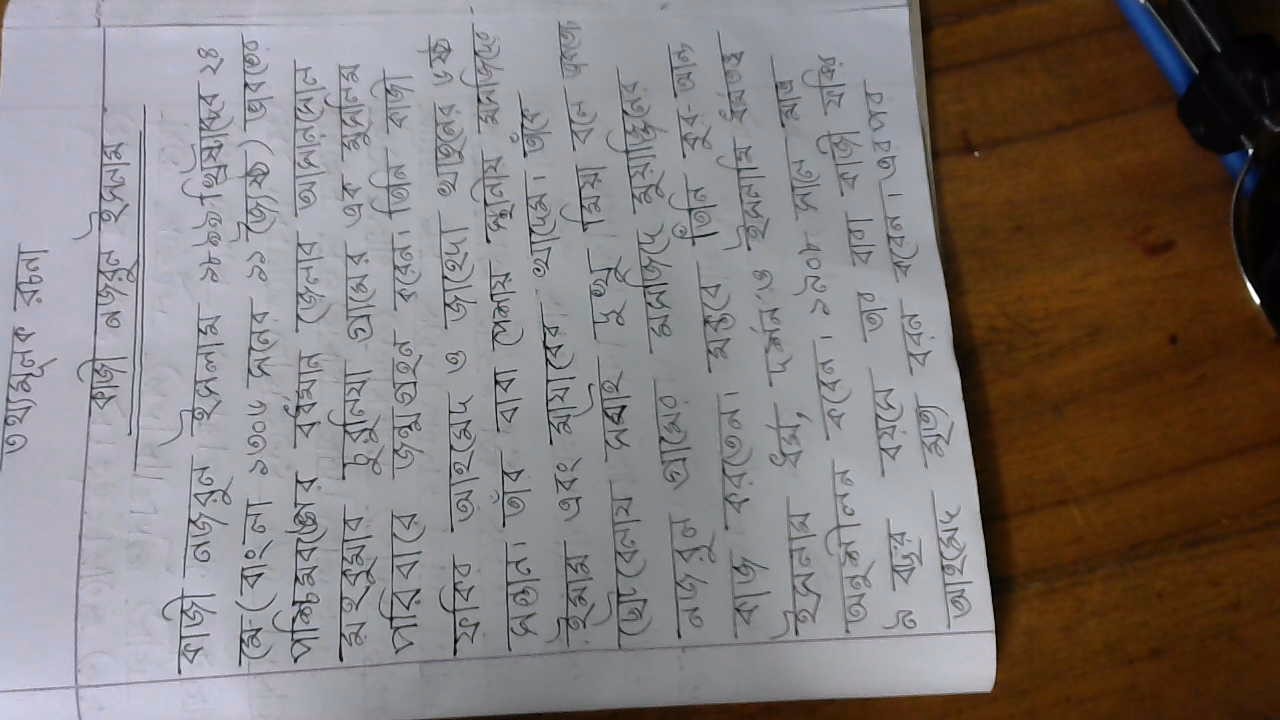 তথ্যমূলক রচনা
কাজী নজরুল ইসলাম
কাজী নজরুল ইসলাম ১৮৯৯ খ্রিষ্টাব্দের ২৪
মে (বাংলা ১৩০৬ সনের ১১ জ্যৈষ্ঠ) ভারতের
পশ্চিমবঙ্গের বর্ধমান জেলার আসানসোল
মহকুমার চুরুলিয়া গ্রামের এক মুসলিম
পরিবারে জন্মগ্রহন করেন। তিনি কাজী
ফকির আহমেদ ও জাহেদা খাতুনের ৬ষ্ঠ
সন্তান। তাঁর বাবা পেশায় স্থানীয় মসজিদের
ইমাম এবং মাযারের খাদেম। তাঁকে
ছোটবেলায় সবাই দুখু মিয়া বলে
নজরুল গ্রামের মসজিদে মুয়াজ্জিনের
কাজ করতেন। মক্তবে তিনি
ইসলাম ধর্ম, দর্শন ও ইসলামি ধর্মতত্ত্ব
অনুশীলন করেন। ১৯০৮ সালে মাত্র
৯ বছর বয়সে তার বাবা কাজী ফকির
আহমেদ মৃত্যু বরন করেন। এরপর